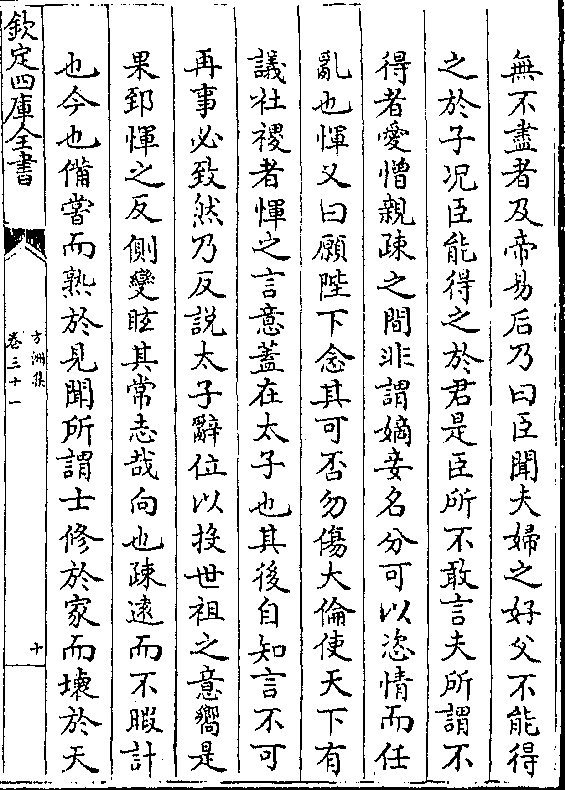 無不盡者及帝易后乃曰臣聞夫婦之好父不能得
之於子况臣能得之於君是臣所不敢言夫所謂不
得者愛憎親疎之間非謂嫡妾名分可以恣情而任
亂也惲又曰願陛下念其可否勿傷大倫使天下有
議社稷者惲之言意蓋在太子也其後自知言不可
再事必致然乃反説太子辭位以投世祖之意嚮是
果郅惲之反側變眩其常志哉向也疎逺而不暇計
也今也備嘗而熟於見聞所謂士修於家而壊於天
欽定四庫全書
方洲集
卷三十一
十